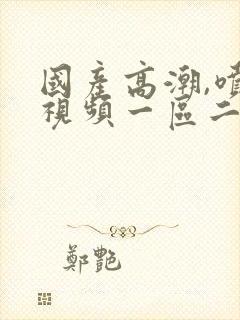 國產高潮,噴
視頻一區二
鄭艷